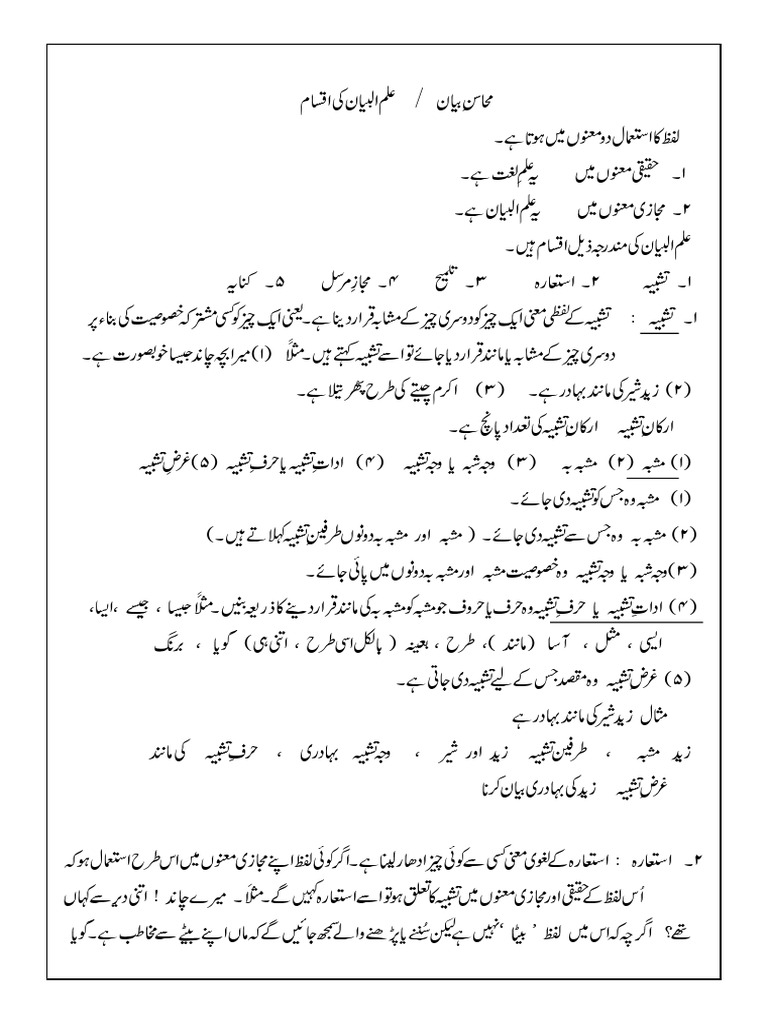 محاسنِ بیان / علم البیان کی اقسام
لفظ کا استعمال دو معنوں میں ہوتا ہے۔
۱۔ حقیقی معنوں میں یہ علمِ لغت ہے۔
۲۔ مجازی معنوں میں یہ علم البیان ہے۔
علم البیان کی مندرجہ ذیل اقسام ہیں ۔
۱۔ تشبیہ ۲۔ استعارہ ۳۔ تلمیح ۴۔ مجازِ مرسل ۵۔ کنایہ
۱۔ تشبیہ : تشبیہ کے لفظی معنی ایک چیز کو دوسری چیز کے مشابہ قرار دینا ہے۔ یعنی ایک چیز کو کسی مشترکہ خصوصیت کی بناء پر
دوسری چیز کے مشابہ یا مانند قرار دیا جائے تو اسے تشبیہ کہتے ہیں۔ مثلاً (۱) میرا بچہ چاند جیسا خوبصورت ہے۔
(۲) زید شیر کی مانند بہادر ہے۔ (۳) اکرم چیتے کی طرح پھرتیلا ہے۔
ارکانِ تشبیہ ارکانِ تشبیہ کی تعداد پانچ ہے۔
(۱) مشبہ (۲) مشبہ بہ (۳) وجہ شبہ یا وجہ تشبیہ (۴) اداتِ تشبیہ یا حرفِ تشبیہ (۵) غرضِ تشبیہ
(۱) مشبہ وہ جس کو تشبیہ دی جائے۔
(۲) مشبہ بہ وہ جس سے تشبیہ دی جائے۔ ( مشبہ اور مشبہ بہ دونوں طرفینِ تشبیہ کہلاتے ہیں۔)
(۳) وجہ شبہ یا وجہ تشبیہ وہ خصوصیت مشبہ اور مشبہ بہ دونوں میں پائی جائے۔
(۴) اداتِ تشبیہ یا حرفِ تشبیہ وہ حرف یا حروف جو مشبہ کو مشبہ بہ کی مانند قرار دینے کا ذریعہ بنیں۔ مثلاً جیسا ، جیسے ، ایسا،
ایسی ، مثل ، آسا (مانند )، طرح ، بعینہ ( بالکل اسی طرح ، اتنی ہی) گویا ، برنگ
(۵) غرضِ تشبیہ وہ مقصد جس کے لیے تشبیہ دی جاتی ہے۔
مثال زید شیر کی مانند بہادر ہے
زید مشبہ ، طرفینِ تشبیہ زید اور شیر ، وجہ تشبیہ بہادری ، حرفِ تشبیہ کی مانند
غرضِ تشبیہ زید کی بہادری بیان کرنا
۲۔ استعارہ : استعارہ کے لغوی معنی کسی سے کوئی چیز ادھار لینا ہے۔ اگر کوئی لفظ اپنے مجازی معنوں میں اس طرح استعمال ہو کہ
اُس لفظ کے حقیقی اور مجازی معنوں میں تشبیہ کا تعلق ہو تو اسے استعارہ کہیں گے۔ مثلاً ۔ میرے چاند ! اتنی دیر سے کہاں
تھے؟ اگرچہ کہ اس میں لفظ ’ بیٹا ‘ نہیں ہے لیکن سُننے یا پڑھنے والے سمجھ جائیں گے کہ ماں اپنے بیٹے سے مخاطب ہے۔ گویا